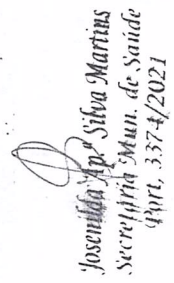 Josenilda Ap.ª Silva Martins
Secretária Mun. de Saúde
Port. 3.374/2021